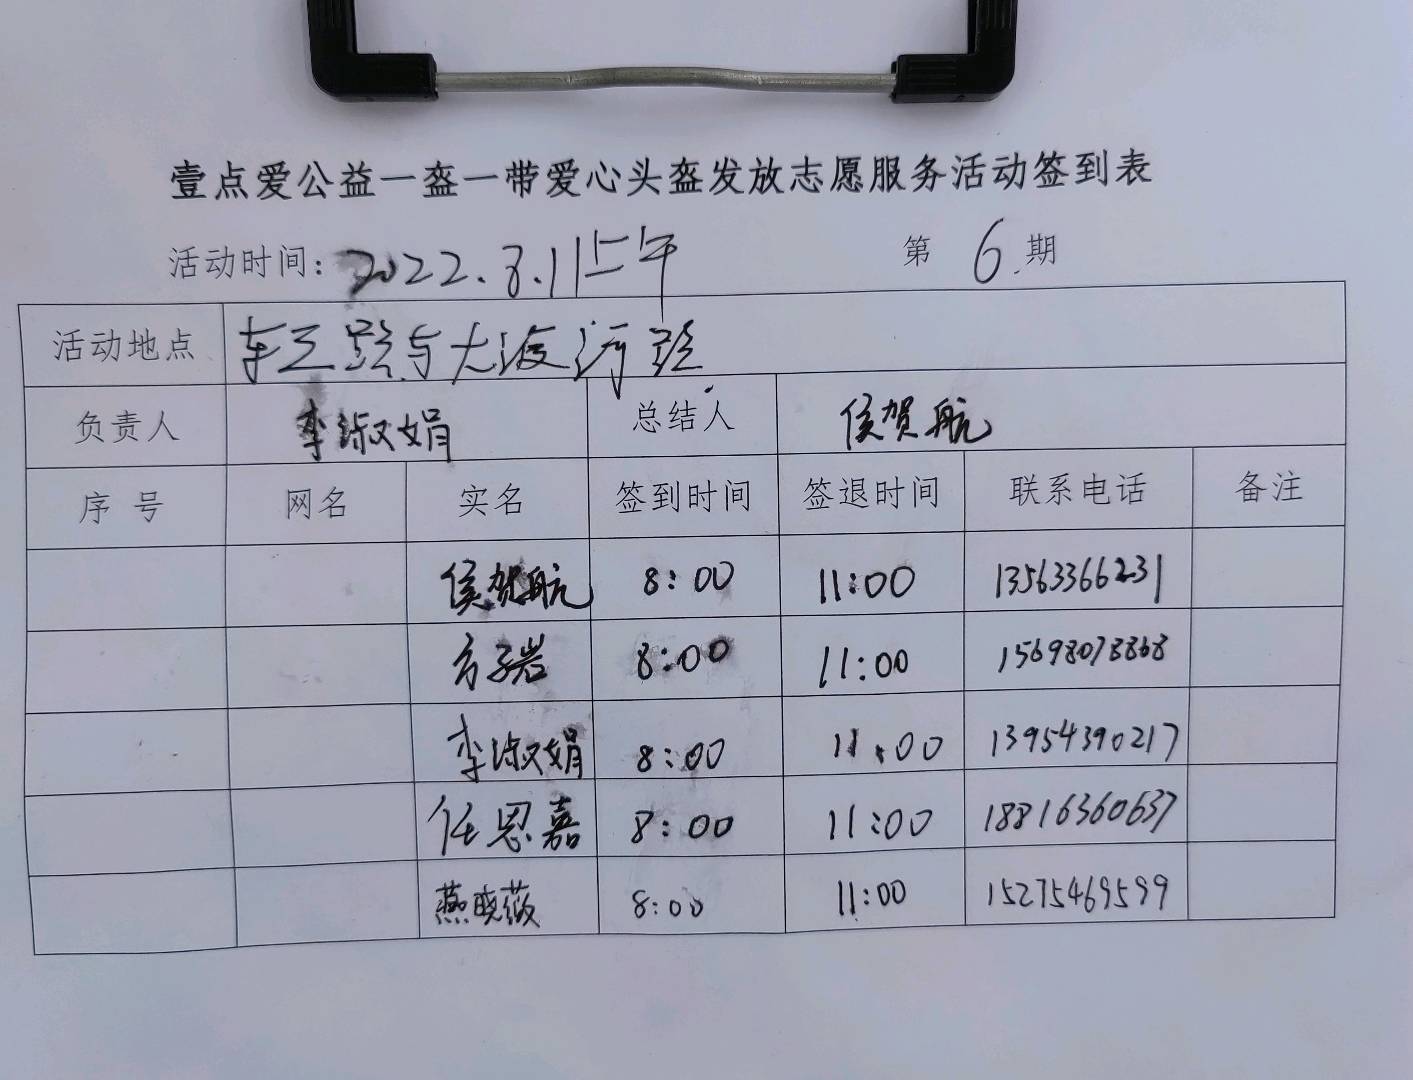 壹点爱公益一盔一带爱心头盔发放志愿服务活动签到表
活动时间: 2022.8.11上午 第 6 期
活动地点 东三路与大渡河路
负责人 李淑娟 总结人 侯贺航
序号 网名 实名 签到时间 签退时间 联系电话 备注
侯贺航 8:00 11:00 13563366231
方子岩 8:00 11:00 15698078868
李淑娟 8:00 11:00 13954390217
任恩嘉 8:00 11:00 18816360637
燕晓薇 8:00 11:00 15275469599